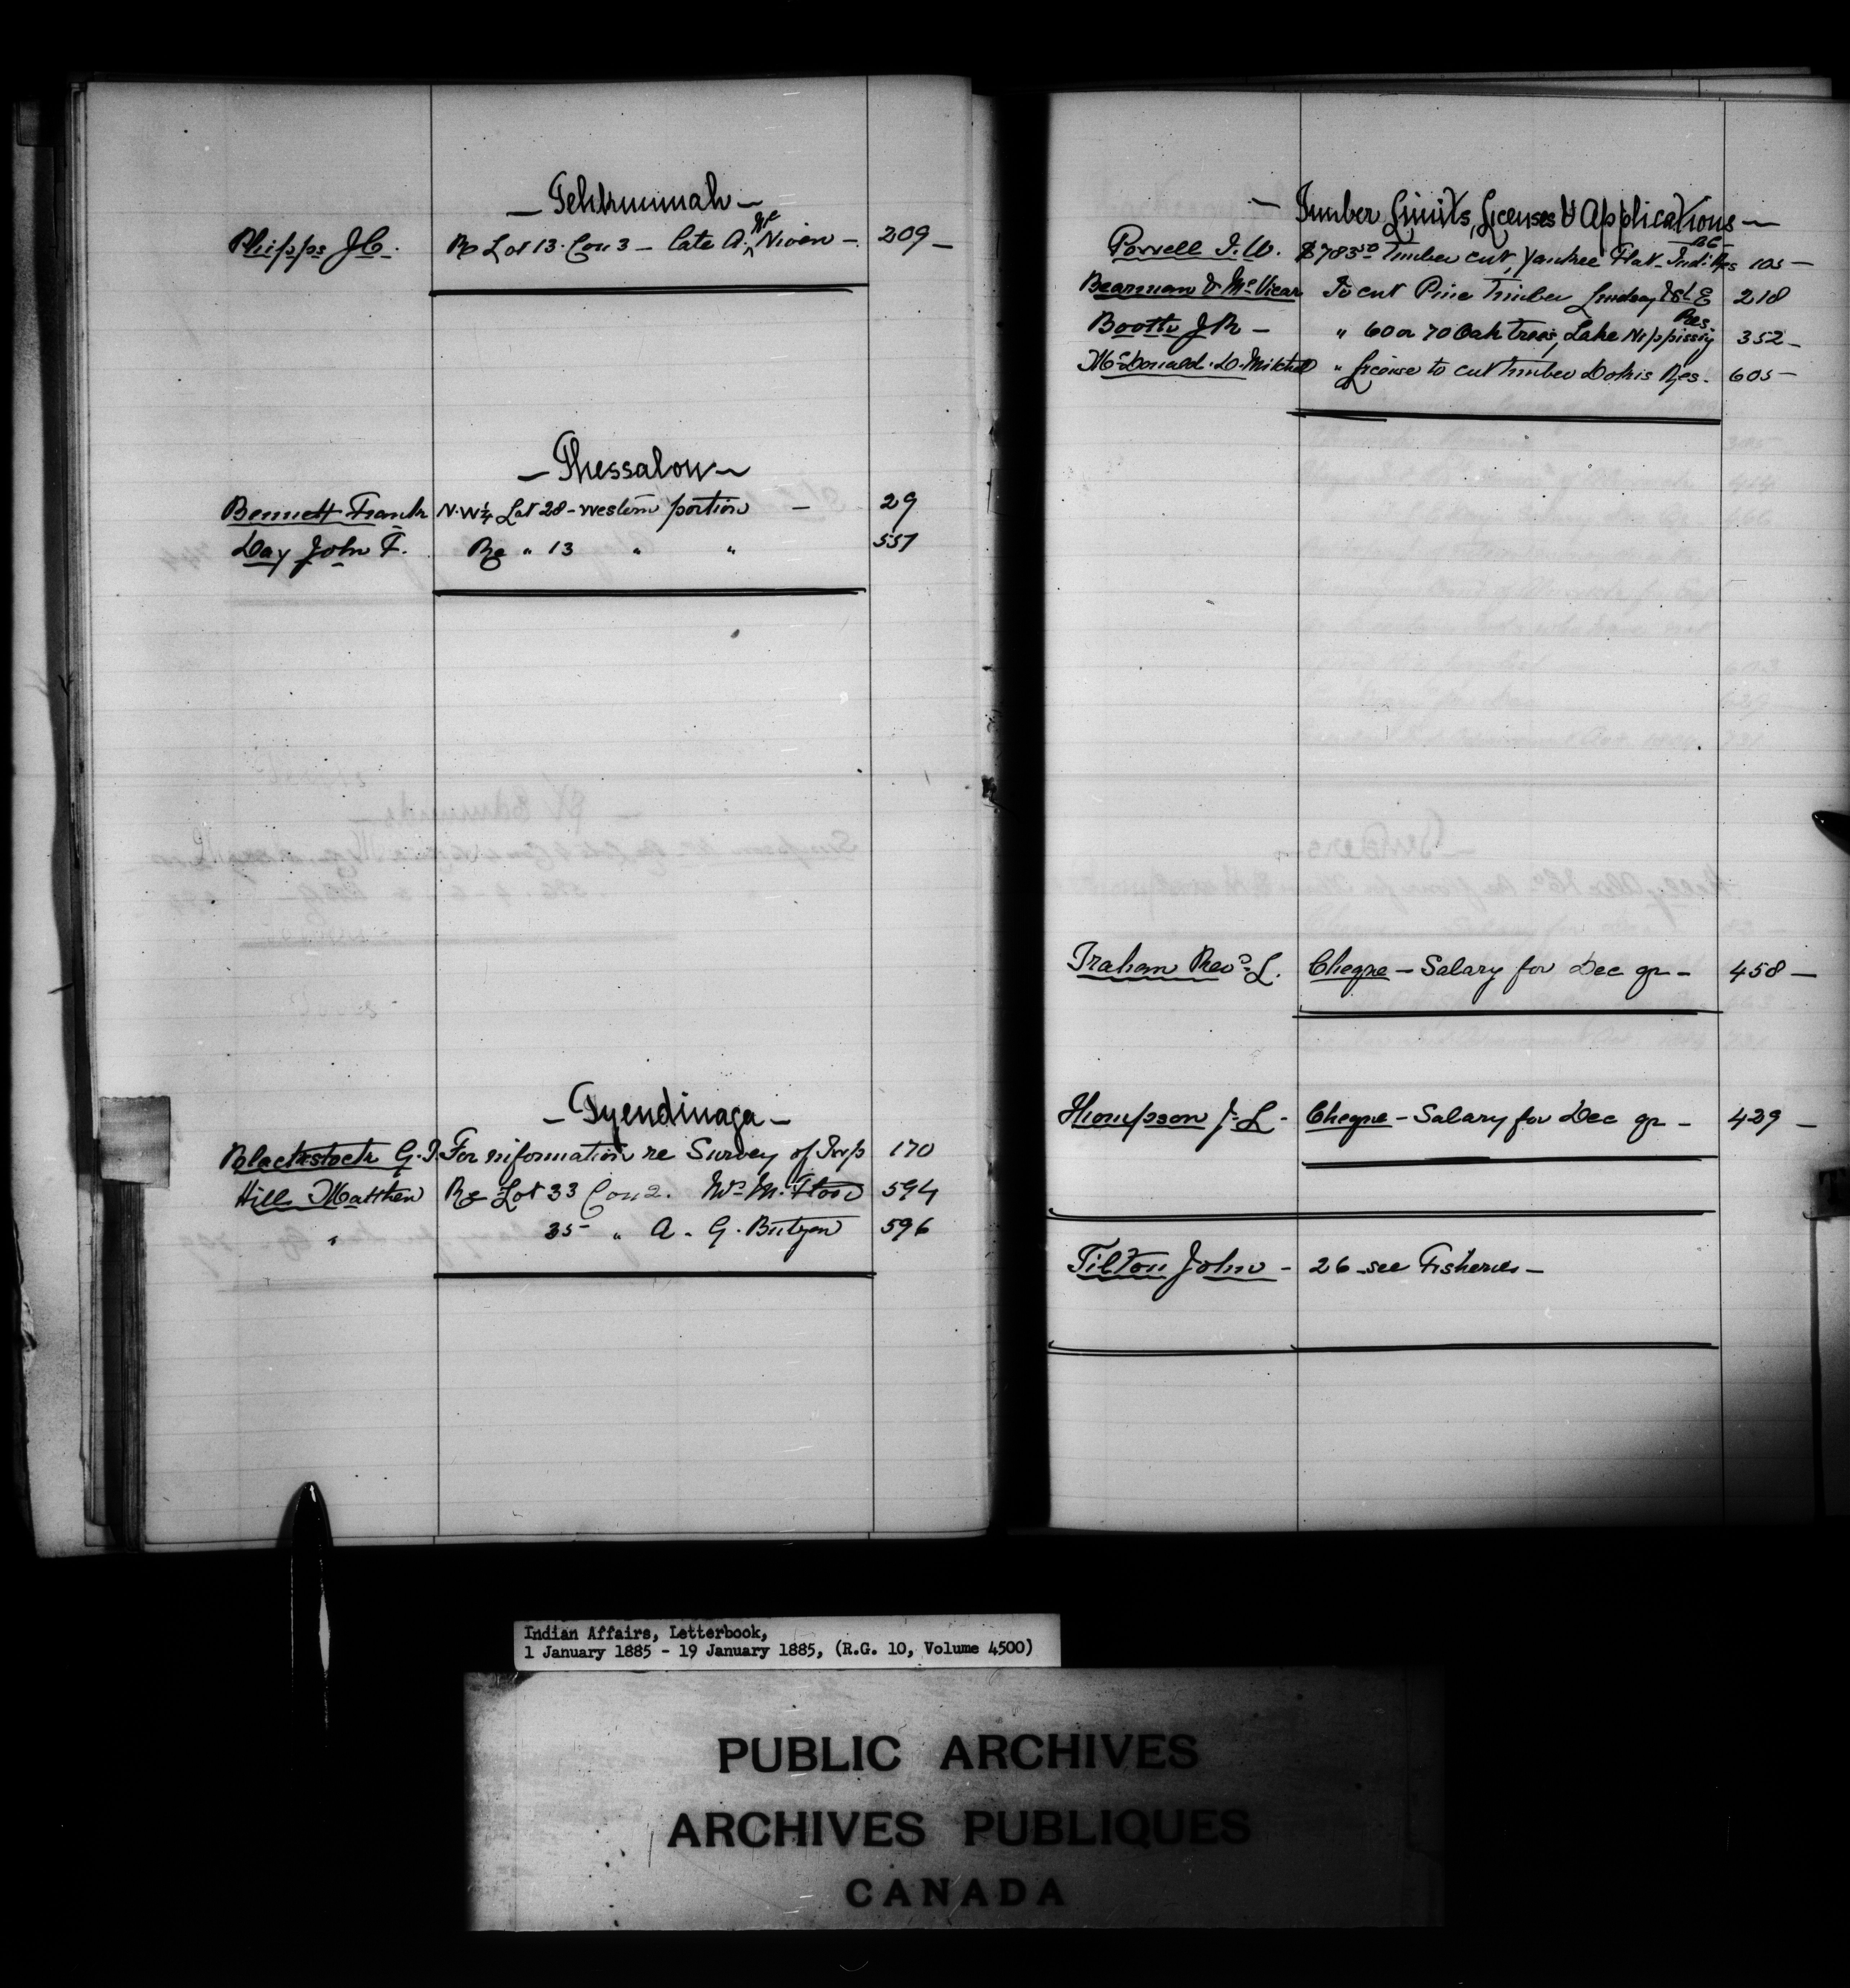 — Tehkummah —
Phipps J.C. Re Lot 13. Con 3 — late A. Mc Niven — 209 —
— Thessalon —
Bennett Frank N.W¼ Lot 28 - western portion — 29
Day John F. Re " 13 " " 557
— Tyendinaga —
Blackstock G.T. For information re Survey of Twp 170
Hill Matthew Re Lot 33 Con 2. Wm M. Flood 594
" 35 " A. G. Butzen 596
— Timber Limits, Licenses & Applications —
Powell I.W. $783.50 Timber cut, Yankee Flat - Ind. Res BC — 105 —
Bearman & McVicar To cut Pine Timber Lindsay Tsh E 218
Booth J R — " 60 or 70 Oak trees, Lake Nippissing Res. 352 —
McDonald D. Mitchell " License to cut timber Dokis Res. 605 —
Trahan Revd. L. Cheque — Salary for Dec qr — 458 —
Thompson J. L — Cheque — Salary for Dec qr — 429 —
Tilton John — 26 see Fisheries —
Indian Affairs, Letterbook,
1 January 1885 - 19 January 1885, (R.G. 10, Volume 4500)
PUBLIC ARCHIVES
ARCHIVES PUBLIQUES
CANADA